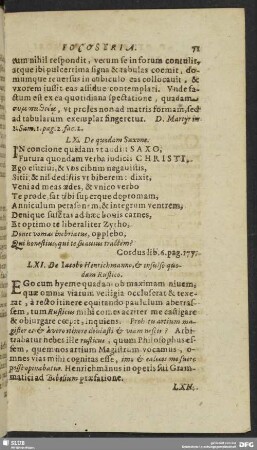 IOCOSERIA. 71
tum nihil respondit, verum se in forum contulit,
atque ibi pulcerrima signa & tabulas coemit, do-
mumque reuersus in cubiculo eas collocauit, &
vxorem iussit eas assidue contemplari. Vnde fa-
ctum est ex ea quotidiana spectatione, quadam
vt proles non ad matris formam, sed
ad tabularum exemplar fingeretur. D. Martyr in
1. Sam. 1. pag. 2. fac. 1.
LX. De quodam Saxone.
IN concione quidam vt audiit SAXO,
Futura quondam verba iudicii CHRISTI,
Ego esuriui, & vos cibum negauistis,
Sitii & nil dedistis vt biberem: dixit,
Veni ad meas ædes, & vnico verbo
Te prode, sat tibi superque deptomam,
Anniculum petason m, & integrum ventrem,
Denique suffctas ad hæc bouis carnes,
Et optimo te liberaliter Zytho,
Donec vomas inebriatus, opplebo,
Qui honestius, qui te suauius tractem?
Cordus lib. 6. pag. 177.
LXI. De Iacobo Henrichmanno, & insulso quo-
dam Rustico.
EGo cum hyeme quadam ob maximam niuem,
quæ omnia viarum vestigia occluserat & texe-
rat, a recto itinere equitando paululum aberras-
sem, tum Rusticus mihi conuersatus me castigare
& obiurgare cœpit, inquiens. Proh tu artium ma-
gister es & a vero itinere deuiasti & viam nescis? Arbi-
trabatur hebes ille rusticus, quum Philosophus es-
sem, quem nos artium Magistrum vocamus, o-
mnes vias mihi cognitas esse, imo & calceos me suere
posse opinabatur. Henrichmannus in operis sui Gram-
matici ad Bebelium præfatione.
LXII.